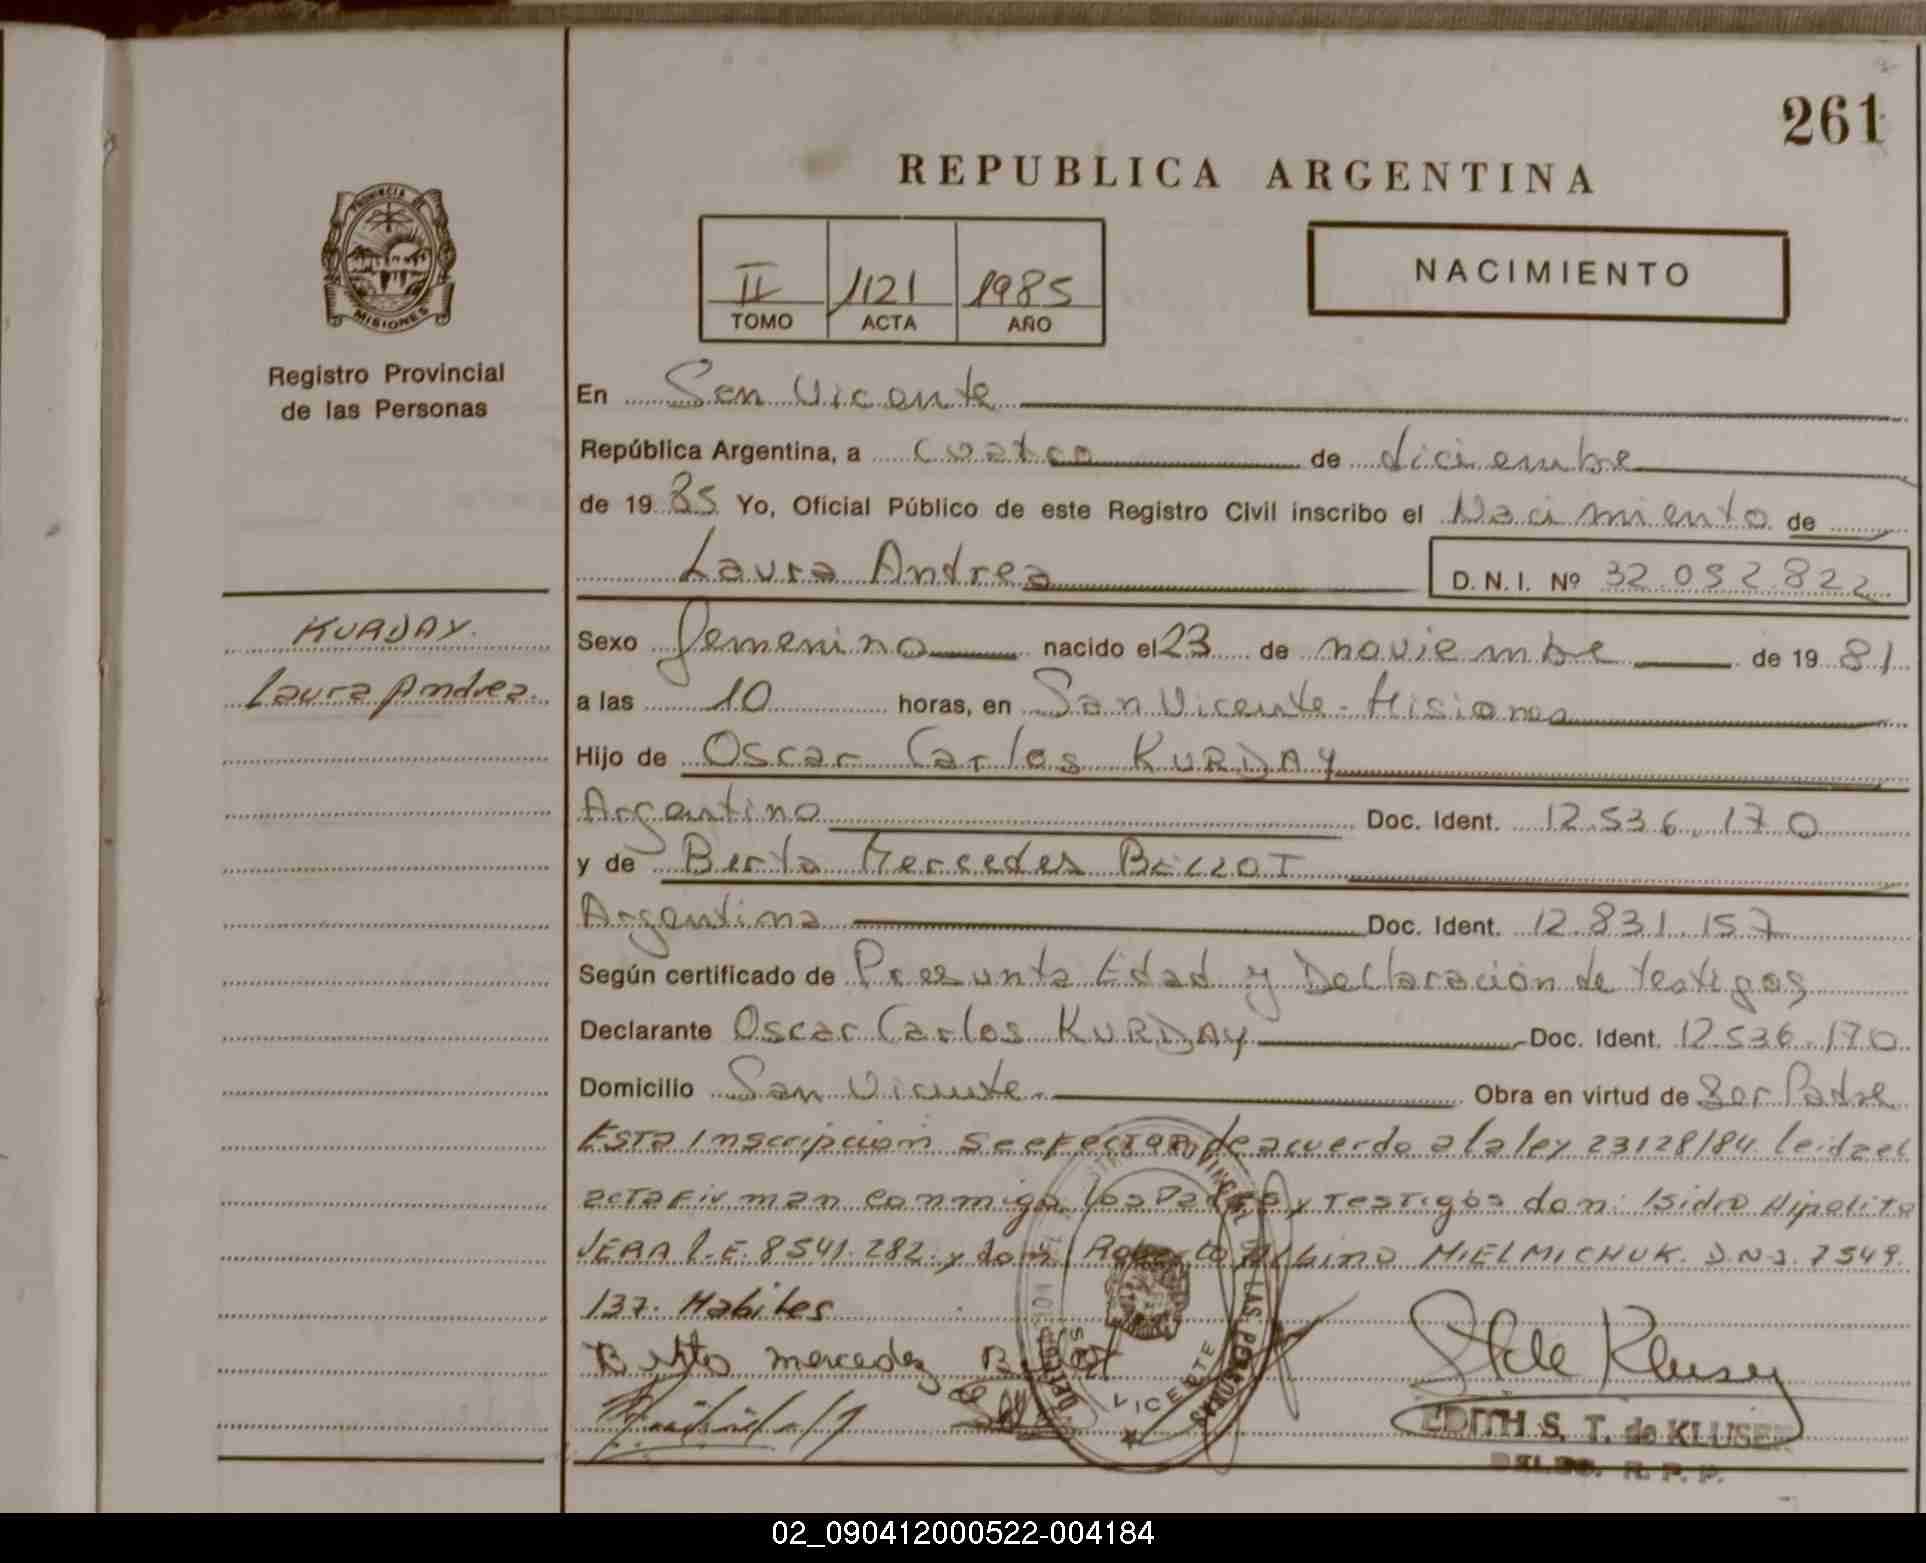 261
REPUBLICA ARGENTINA
PROVINCIA DE
MISIONES
Registro Provincial
de las Personas
II 1121 1985
TOMO ACTA AÑO
NACIMIENTO
En San Vicente
República Argentina, a cuatro de diciembre
de 1985 Yo, Oficial Público de este Registro Civil inscribo el Nacimiento de
Laura Andrea D.N.I. Nº 32.052.822
KURDAY.
Laura Andrea.
Sexo femenino nacido el 23 de noviembre de 1981
a las 10 horas, en San Vicente - Misiones
Hijo de Oscar Carlos KURDAY
Argentino Doc. Ident. 12.536.170
y de Berta Mercedes BILLOT
Argentina Doc. Ident. 12.831.157
Según certificado de Presunta Edad y Declaración de testigos
Declarante Oscar Carlos KURDAY Doc. Ident. 12.536.170
Domicilio San Vicente. Obra en virtud de Ser Padre
Esta Inscripcion se efectua de acuerdo a la ley 23128/84. leida el
acta firman conmigo los Padres y Testigos don: Isidro Hipolito
VERA L.E. 8541.282. y don Roberto Albino MIELMICHUK. D.N.I. 7549.
137. Habiles
Berta mercedes
EDITH S. T. de KLUSER
DELEG. R. P. P.
02_090412000522-004184